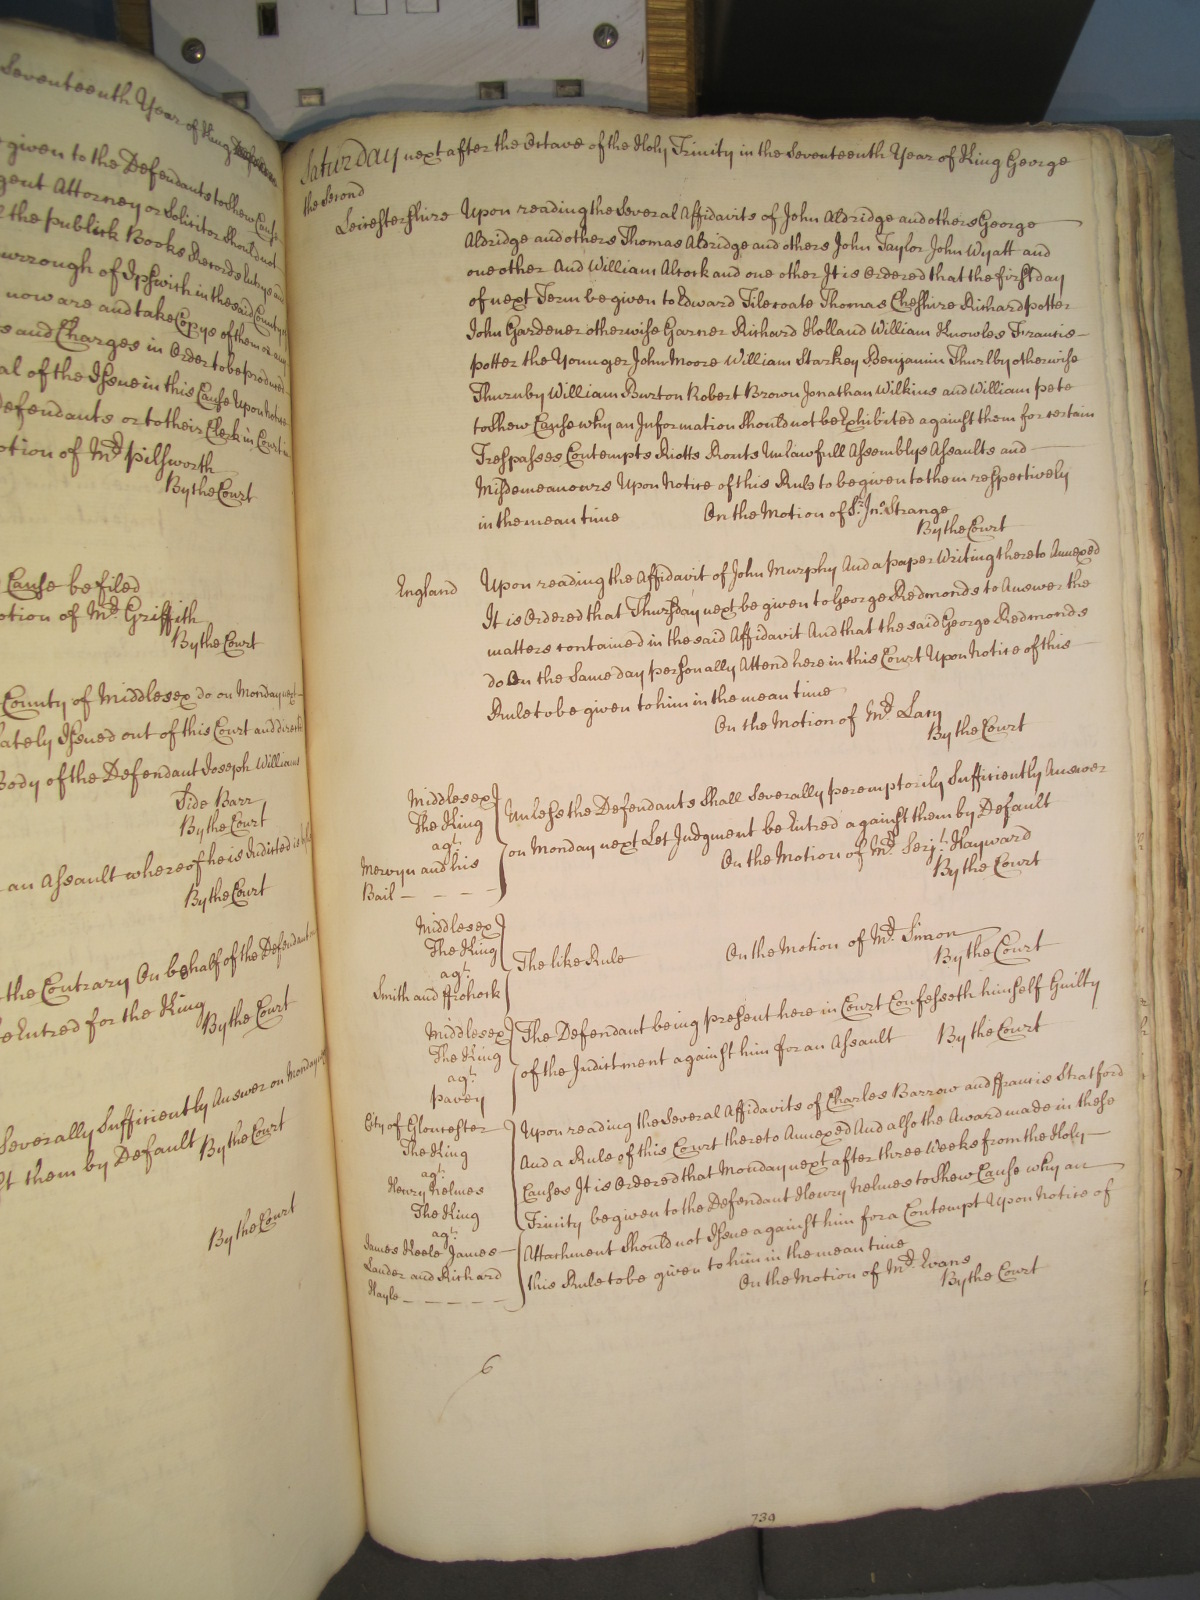 Seventeenth Year of King
given to the Defendants to Shew Cause
gent Attorney or Solicitor should not
the publick Books Records Entrys and
urrough of Ipswich in the said County
now are and take Copys of them or any
s and Charges in Order to be produced
al of the Issue in this Cause Upon notice
Defendants or to their Clerk in Court
otion of Mr. Pilsworth
By the Court
Cause be filed
otion of Mr. Griffith
By the Court
County of Middlesex do on Monday next
lately Issued out of this Court and directed
Body of the Defendant Joseph Williams
Side Barr
By the Court
an Assault whereof he is Indicted is
By the Court
the Contrary On behalf of the Defendant
e Entred for the King
By the Court
Severally Sufficiently Answer on Monday
st them by Default By the Court
By the Court
Saturday next after the Octave of the Holy Trinity in the Seventeenth Year of King George
the Second
Leicestershire Upon reading the Several Affidavits of John Aldridge and others George
Aldridge and others Thomas Aldridge and others John Taylor John Wyatt and
one other And William Alcock and one other It is Ordered that the first day
of next Term be given to Edward Tilecoate Thomas Cheshire Richard potter
John Gardener otherwise Garner Richard Holland William Knowles Francis
potter the Younger John Moore William Starkey Benjamin Thurlby otherwise
Thurnby William Burton Robert Brown Jonathan Wilkins and William pete
to Shew Cause why an Information Should not be Exhibited against them for certain
Trespasses Contempts Riotts Routs Unlawfull Assemblys Assaults and
Misdemeanours Upon Notice of this Rule to be given to them respectively
in the mean time On the Motion of Sr. Jno. Strange
By the Court
England Upon reading the Affidavit of John Murphy And a paper Writing thereto Annexed
It is Ordered that Thursday next be given to George Redmonds to Answer the
matters contained in the said Affidavit And that the said George Redmonds
do On the Same day personally Attend here in this Court Upon Notice of this
Rule to be given to him in the mean time
On the Motion of Mr. Lacy
By the Court
Middlesex
The King
agt.
Mervyn and his
Bail
Unless the Defendants Shall Severally peremptorily Sufficiently Answer
on Monday next Let Judgment be Entred against them by Default
On the Motion of Mr. Serjt. Hayward
By the Court
Middlesex
The King
agt.
Smith and ffrohock
The like Rule On the Motion of Mr. Simon
By the Court
Middlesex
The King
agt.
pavey
The Defendant being present here in Court Confesseth himself Guilty
of the Indictment against him for an Assault By the Court
City of Gloucester
The King
agt.
Henry Nelmes
The King
agt.
James Keele James
Lander and Richard
Hayle
Upon reading the Several Affidavits of Charles Barrow and ffrancis Stratford
And a Rule of this Court thereto Annexed And also the Award made in these
Causes It is Ordered that Monday next after three Weeks from the Holy
Trinity be given to the Defendant Henry Nelmes to Shew Cause why an
Attachment Should not Issue against him for a Contempt Upon Notice of
this Rule to be given to him in the mean time
On the Motion of Mr. Evans
By the Court
6
739